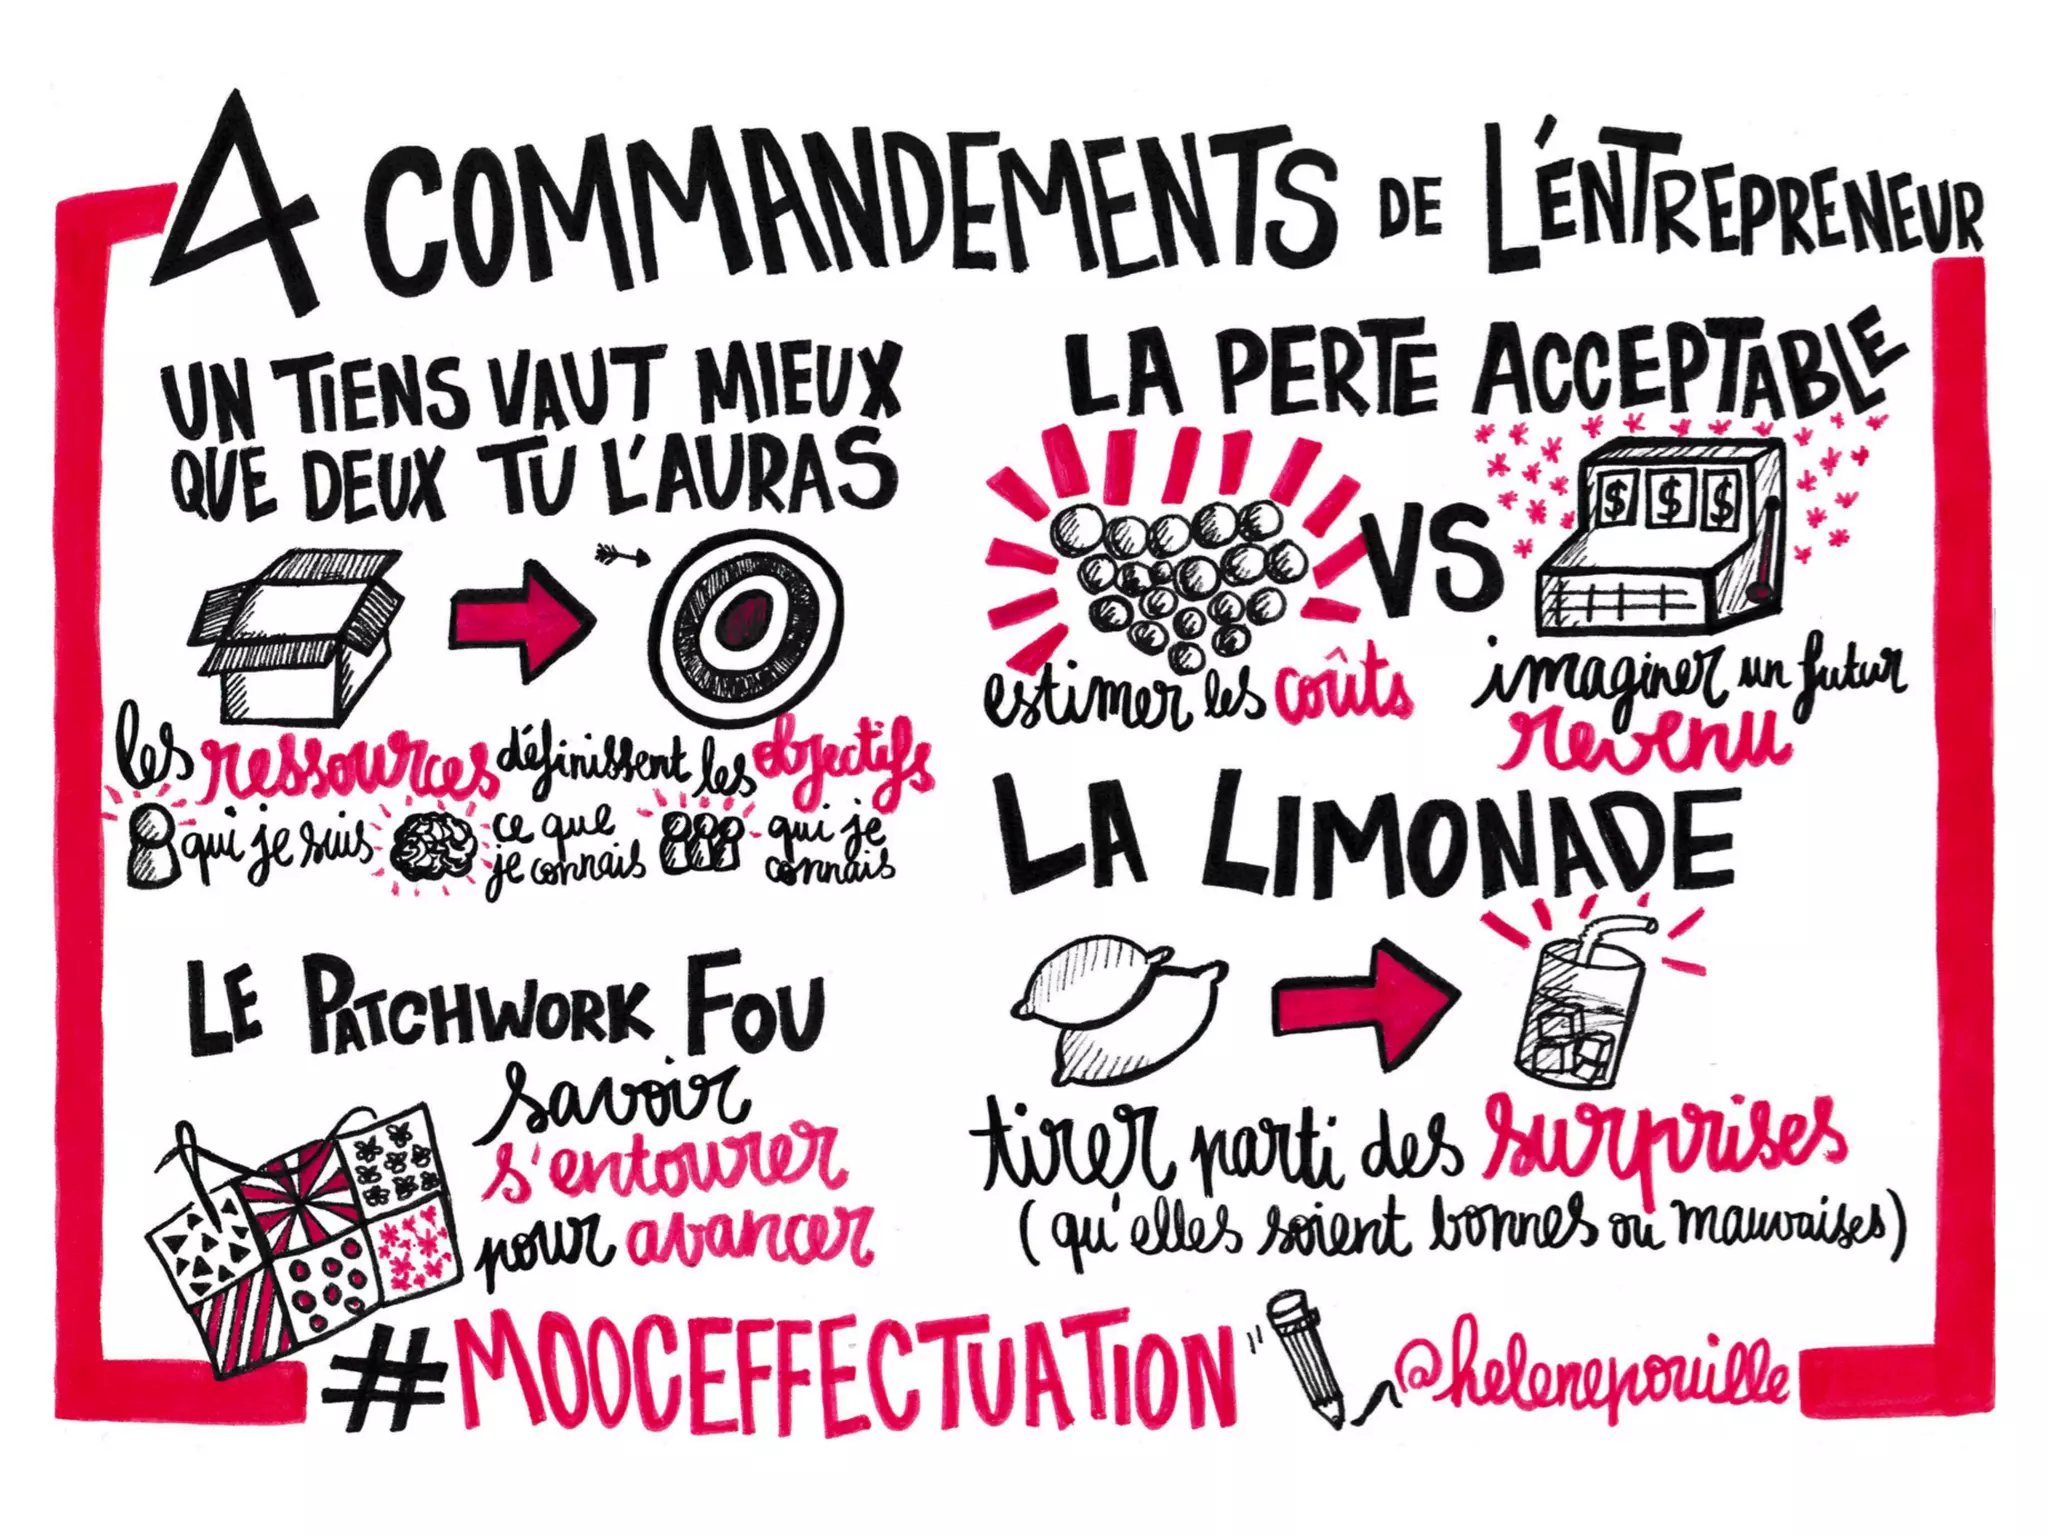 4 COMMANDEMENTS DE L'ENTREPRENEUR
UN TIENS VAUT MIEUX
QUE DEUX TU L'AURAS
les ressources définissent les objectifs
qui je suis
ce que
je connais
qui je
connais
LA PERTE ACCEPTABLE
VS
$ $ $
estimer les coûts
imaginer un futur
revenu
LE PATCHWORK FOU
savoir
s'entourer
pour avancer
LA LIMONADE
tirer parti des surprises
(qu'elles soient bonnes ou mauvaises)
#MOOCEFFECTUATION
@helenepouille